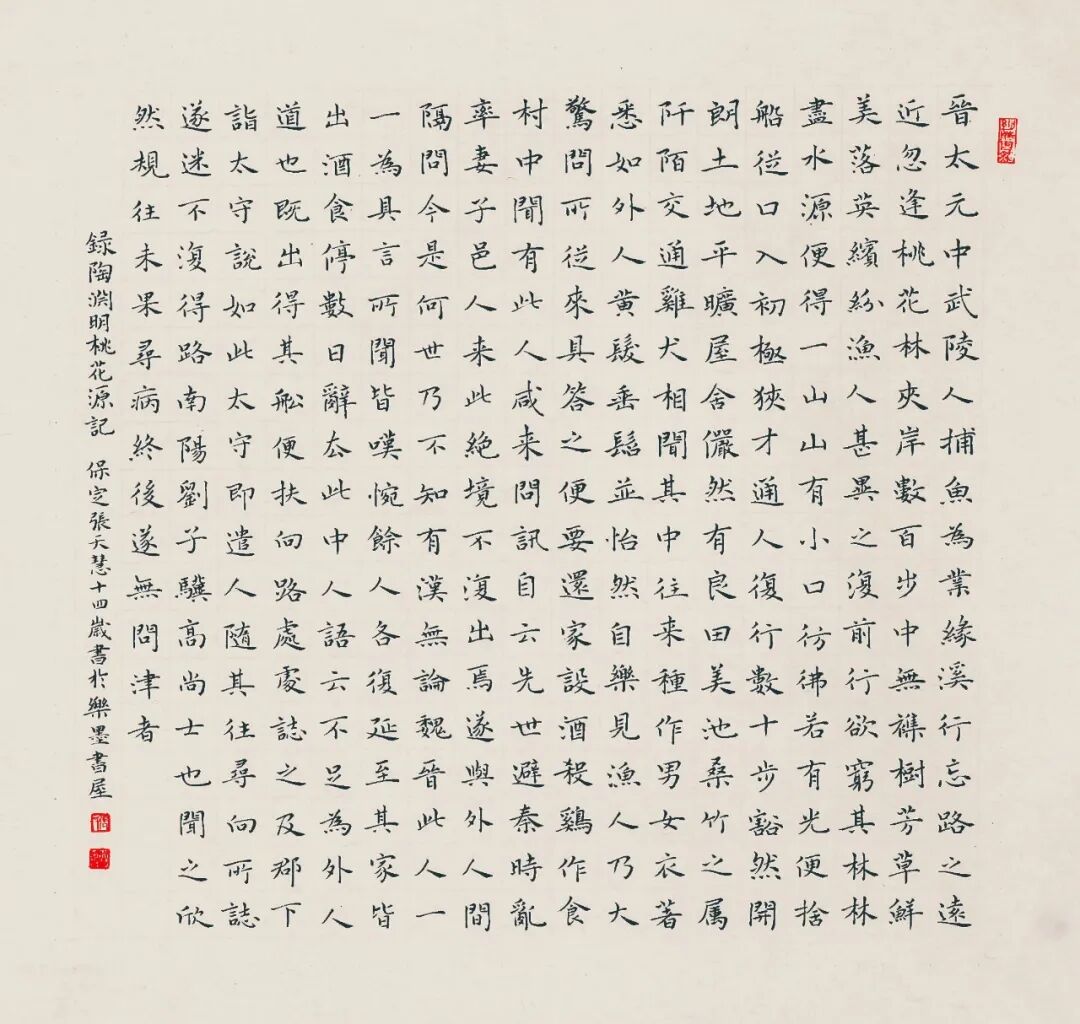 晉太元中武陵人捕魚為業緣溪行忘路之遠
近忽逢桃花林夾岸數百步中無襍樹芳草鮮
美落英繽紛漁人甚異之復前行欲窮其林林
盡水源便得一山山有小口彷彿若有光便捨
船從口入初極狹才通人復行數十步豁然開
朗土地平曠屋舍儼然有良田美池桑竹之属
阡陌交通雞犬相聞其中往来種作男女衣著
悉如外人黃髮垂髫並怡然自樂見漁人乃大
驚問所從來具答之便要還家設酒殺鷄作食
村中聞有此人咸来問訊自云先世避秦時亂
率妻子邑人来此絕境不復出焉遂與外人間
隔問今是何世乃不知有漢無論魏晉此人一
一為具言所聞皆嘆惋餘人各復延至其家皆
出酒食停數日辭去此中人語云不足為外人
道也既出得其船便扶向路處處誌之及郡下
詣太守說如此太守即遣人隨其往尋向所誌
遂迷不復得路南陽劉子驥高尚士也聞之欣
然規往未果尋病終後遂無問津者
錄陶淵明桃花源記 保定張天慧十四歲書於樂墨書屋